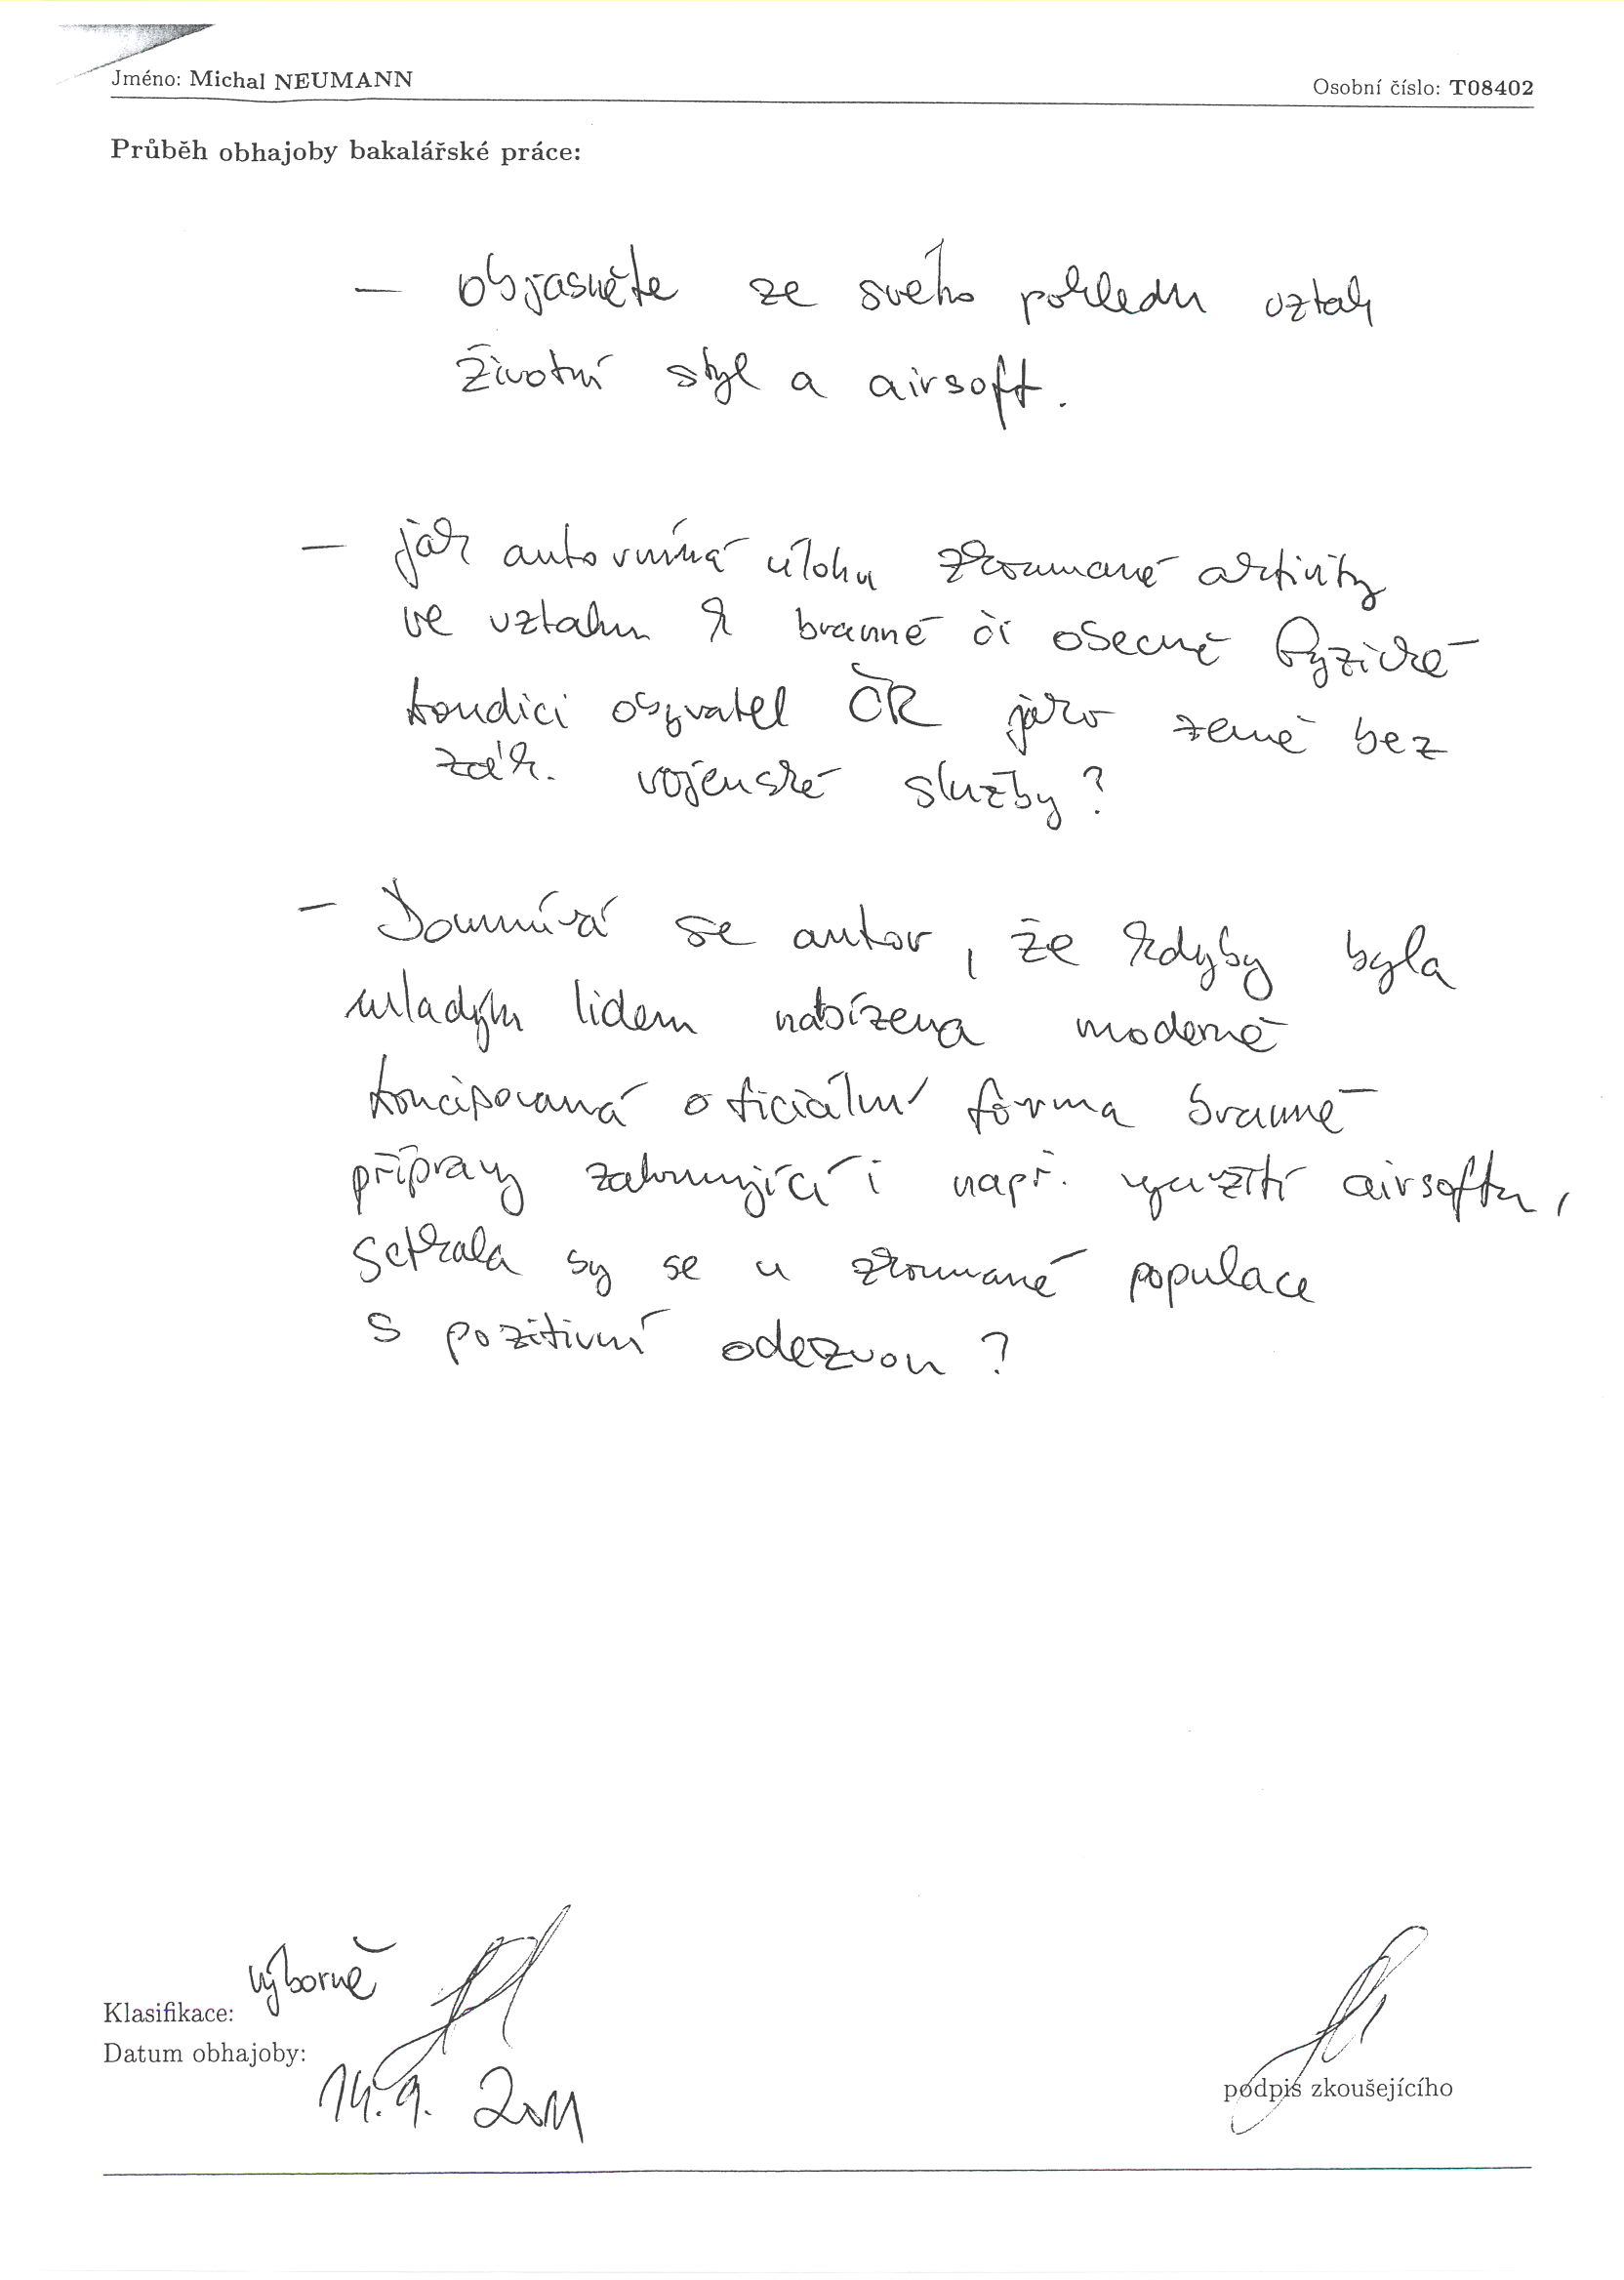 Jméno: Michal NEUMANN
Osobní číslo: T08402
Průběh obhajoby bakalářské práce:
– objasněte ze svého pohledu vztah
životní styl a airsoft.
– jak autor vnímá úlohu zkoumané aktivity
ve vztahu k branné či obecné fyzické
kondici obyvatel ČR jako země bez
zákl. vojenské služby?
– Domnívá se autor, že kdyby byla
mladým lidem nabízena moderně
koncipovaná oficiální forma branné
přípravy zahrnující i např. využití airsoftu,
setkala by se u zkoumané populace
s pozitivní odezvou?
Klasifikace: výborně
Datum obhajoby: 14. 9. 2011
podpis zkoušejícího